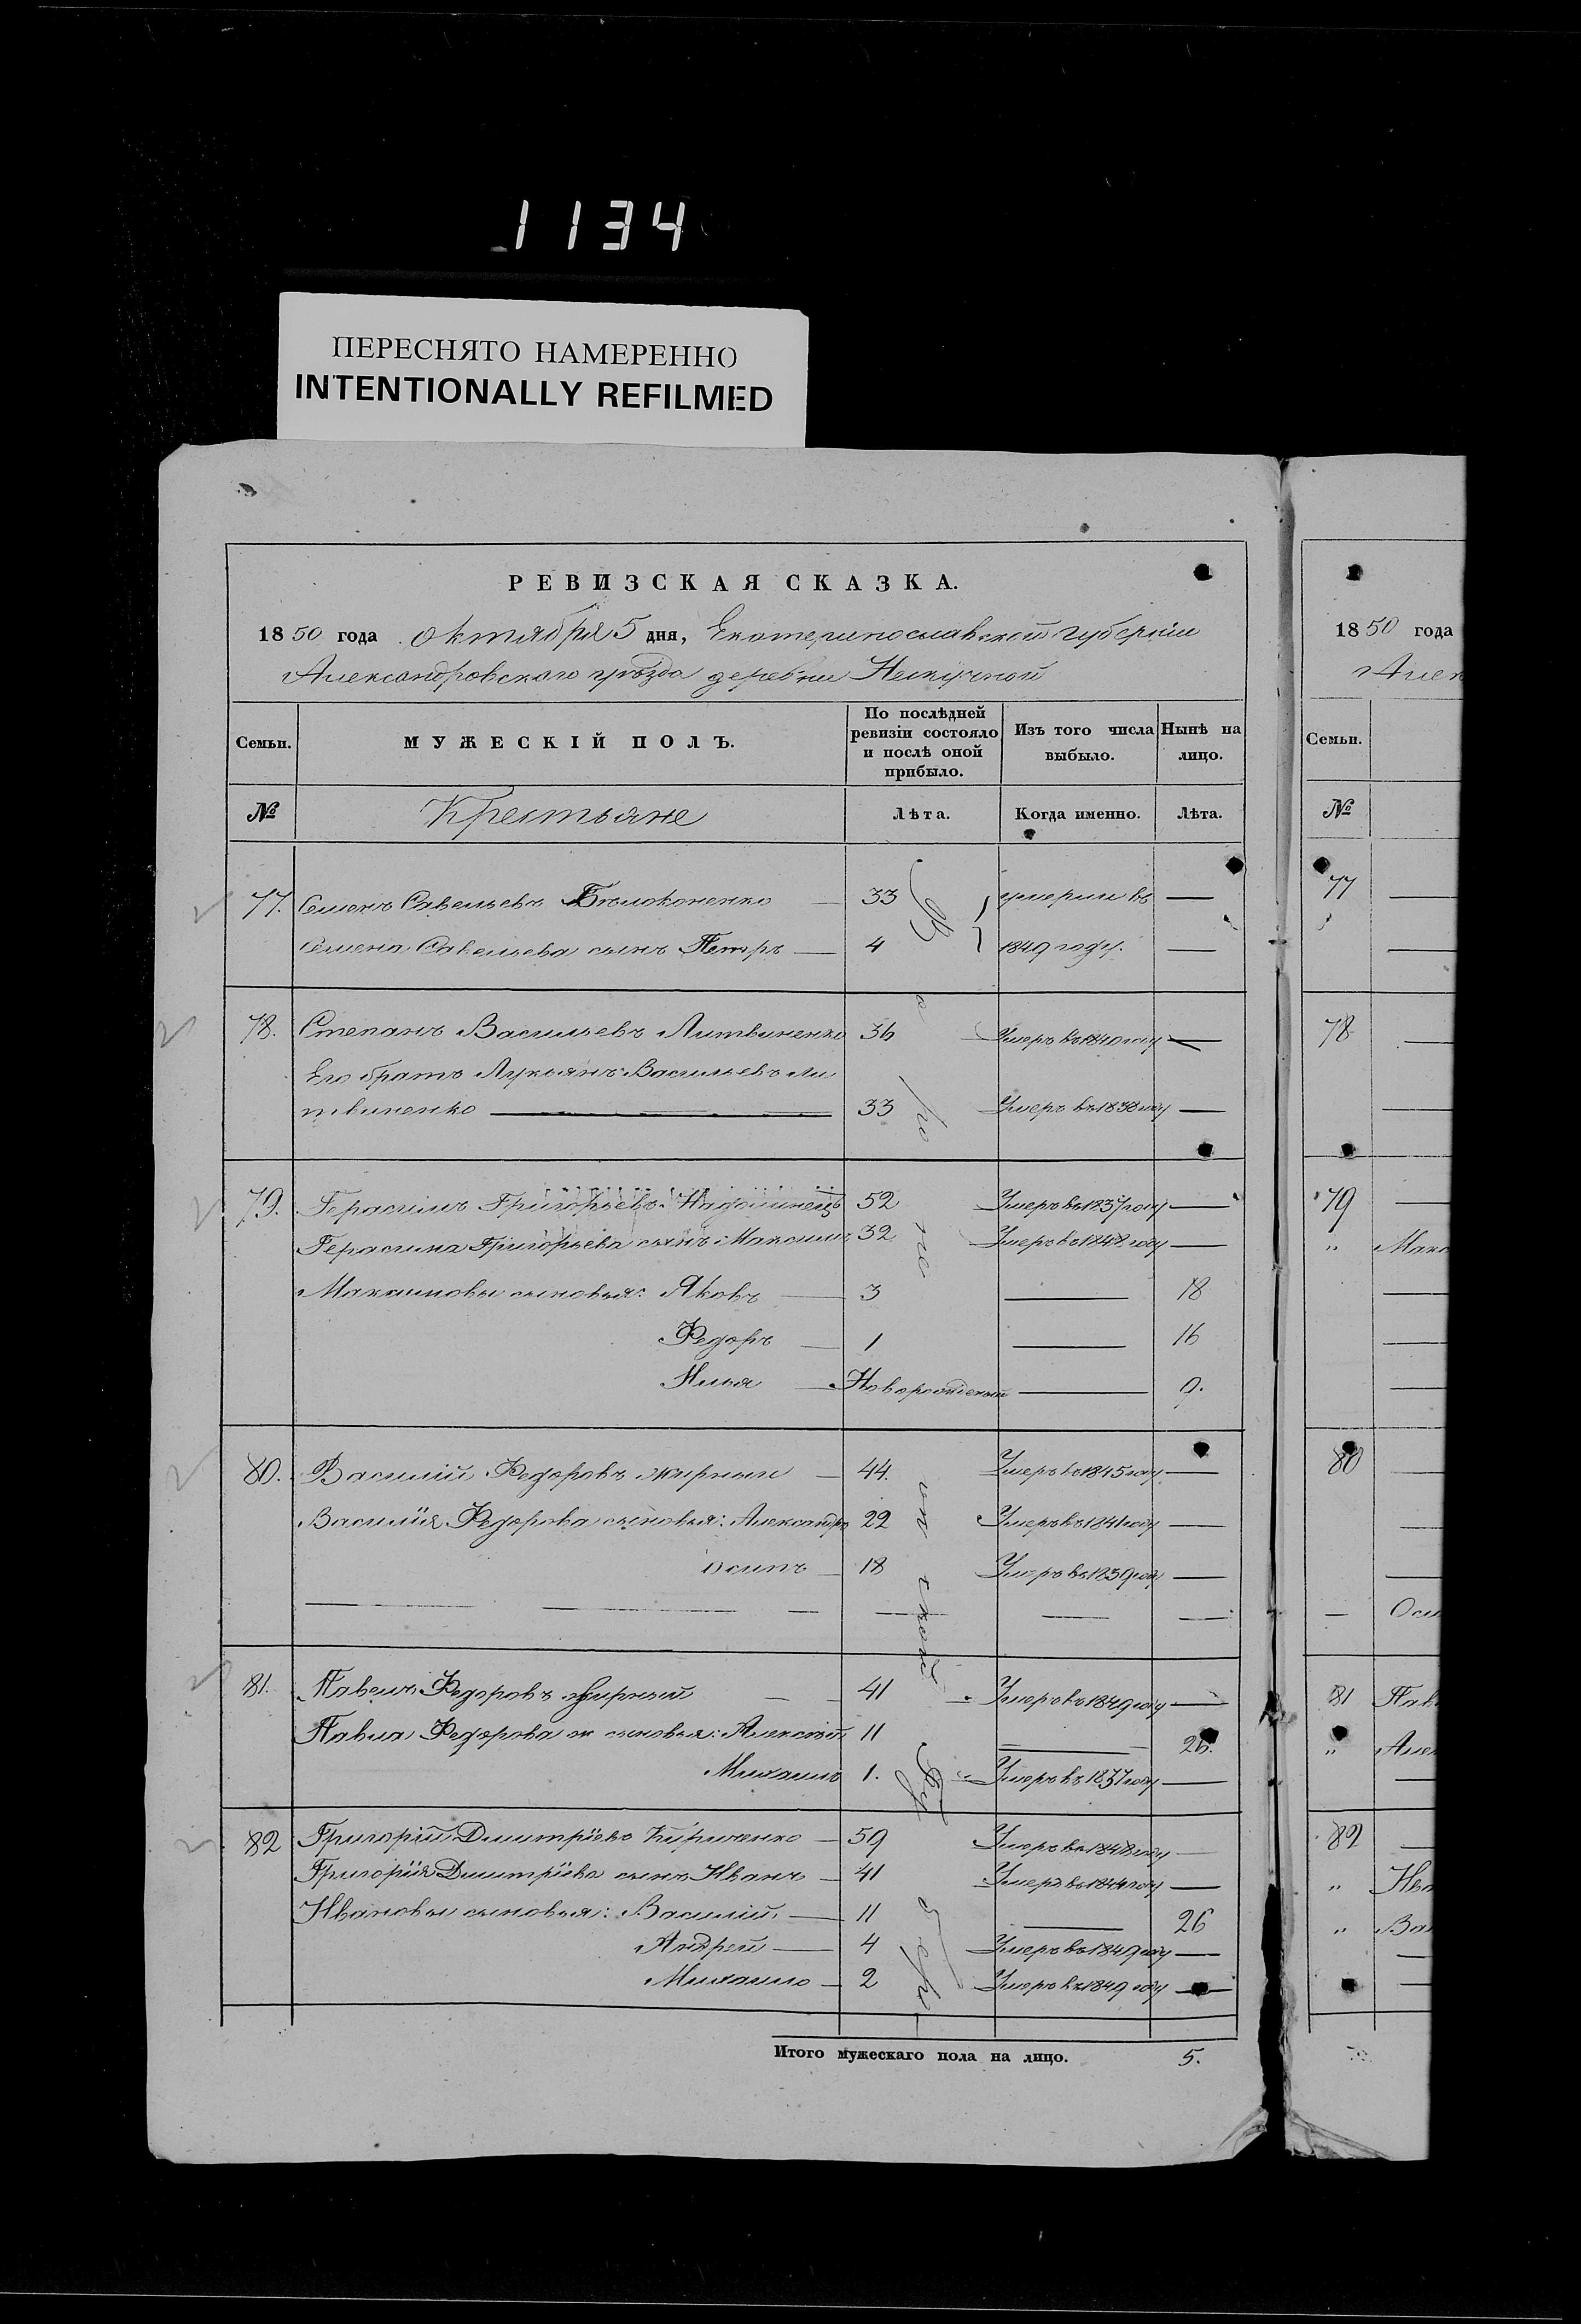 1134
ПЕРЕСНЯТО НАМЕРЕННО
INTENTIONALLY REFILMED
РЕВИЗСКАЯ СКАЗКА.
1850 года октября 5 дня, Екатеринославской губернiи
Александровскаго уѣзда деревни Нескучной
Семьи. МУЖЕСКІЙ ПОЛЪ. По послѣдней ревизіи состояло и послѣ оной прибыло. Изъ того числа выбыло. Нынѣ на лицо.
№ Крестьяне Лѣта. Когда именно. Лѣта.
77. Семенъ Савельевъ Бѣлоконенко — 33 умерли въ —
Семена Савельева сынъ Петръ — 4 1849 году. —
78. Степанъ Васильевъ Литвиненко 36 Умеръ въ 1840 году —
Его братъ Лукьянъ Васильевъ Ли
твиненко — 33 Умеръ въ 1838 году —
79. Герасимъ Григорьевъ 52 Умеръ въ 1837 году —
Герасима Григорьева сынъ Максимъ 32 Умеръ въ 1848 году —
Максимовы сыновья: Яковъ — 3 — 18
Федоръ — 1 — 16
Илья — Новорожденый — 9.
80. Василій Федоровъ Жирный — 44. Умеръ въ 1845 году —
Василія Федорова сыновья: Александръ 22 Умеръ въ 1841 году —
Осипъ — 18 Умеръ въ 1839 году —
81. Павелъ Федоровъ Жирный — 41 Умеръ въ 1849 году —
Павла Федорова сыновья: Алексѣй 11 — 26.
Михаилъ 1. Умеръ въ 1837 году —
82 Григорій Дмитріевъ Кириченко — 59 Умеръ въ 1848 году —
Григорія Дмитріева сынъ Иванъ — 41 Умеръ въ 1844 году —
Ивановы сыновья: Василій, — 11 — 26
Андрей — 4 Умеръ въ 1849 году —
Михаило — 2 Умеръ въ 1849 году —
Итого мужескаго пола на лицо. 5.
1850 года
Алек
Семьи.
№
77
78
79
" Мак
80
— Оси
81 Пав
" Але
82
" Ива
" Ва